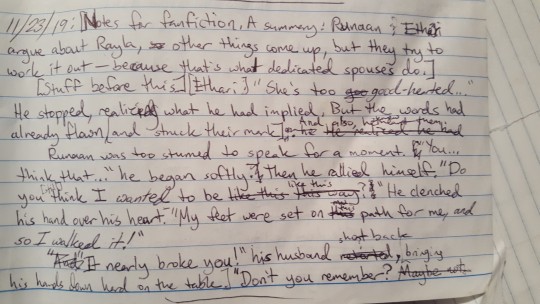 11/23/19: Notes for fanfiction. A summary: Runaan & Ethari
argue about Rayla, so other things come up, but they try to
work it out—because that's what dedicated spouses do.]
[Stuff before this.] [Ethari:] "She's too goo good-hearted..."
He stopped, realizing what he had implied. But the words had
already flown and struck their mark.
And also, he
he He realized he had
Runaan was too stunned to speak for a moment. "You...
think that..." he began softly; then he rallied himself. "Do
you think I wanted to be like this this way?" He clenched
like this
his hand over his heart. "My feet were set on this path for me, and
so I walked it!"
"It nearly broke you!" his husband retorted, bringing
shot back
his hands down hard on the table. "Don't you remember? Maybe not.